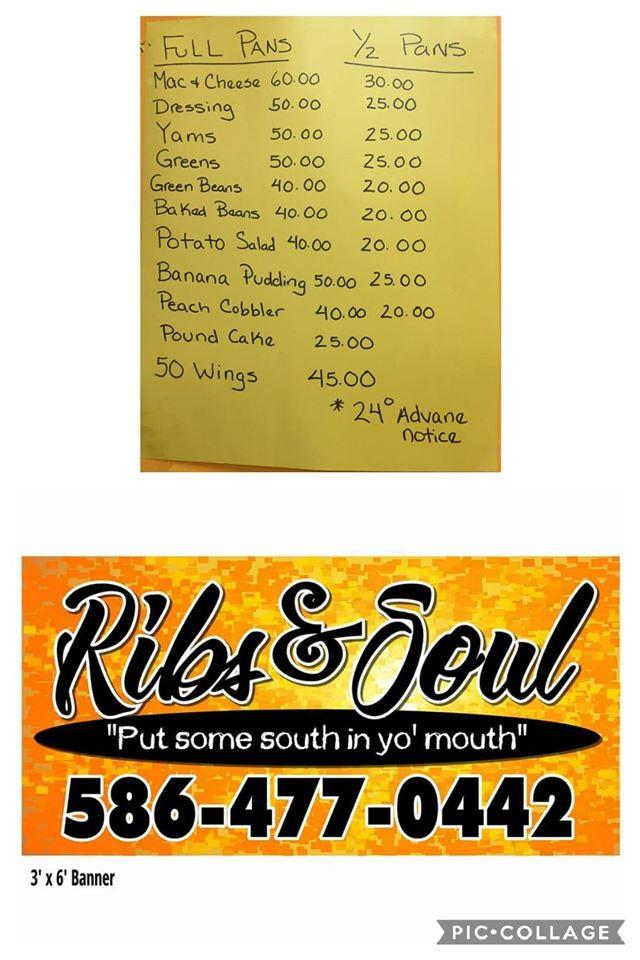 * FULL PANS 1/2 Pans
Mac & Cheese 60.00 30.00
Dressing 50.00 25.00
Yams 50.00 25.00
Greens 50.00 25.00
Green Beans 40.00 20.00
Baked Beans 40.00 20.00
Potato Salad 40.00 20.00
Banana Pudding 50.00 25.00
Peach Cobbler 40.00 20.00
Pound Cake 25.00
50 Wings 45.00
* 24° Advane
notice
Ribs & Soul
"Put some south in yo' mouth"
586-477-0442
3' x 6' Banner
PIC•COLLAGE